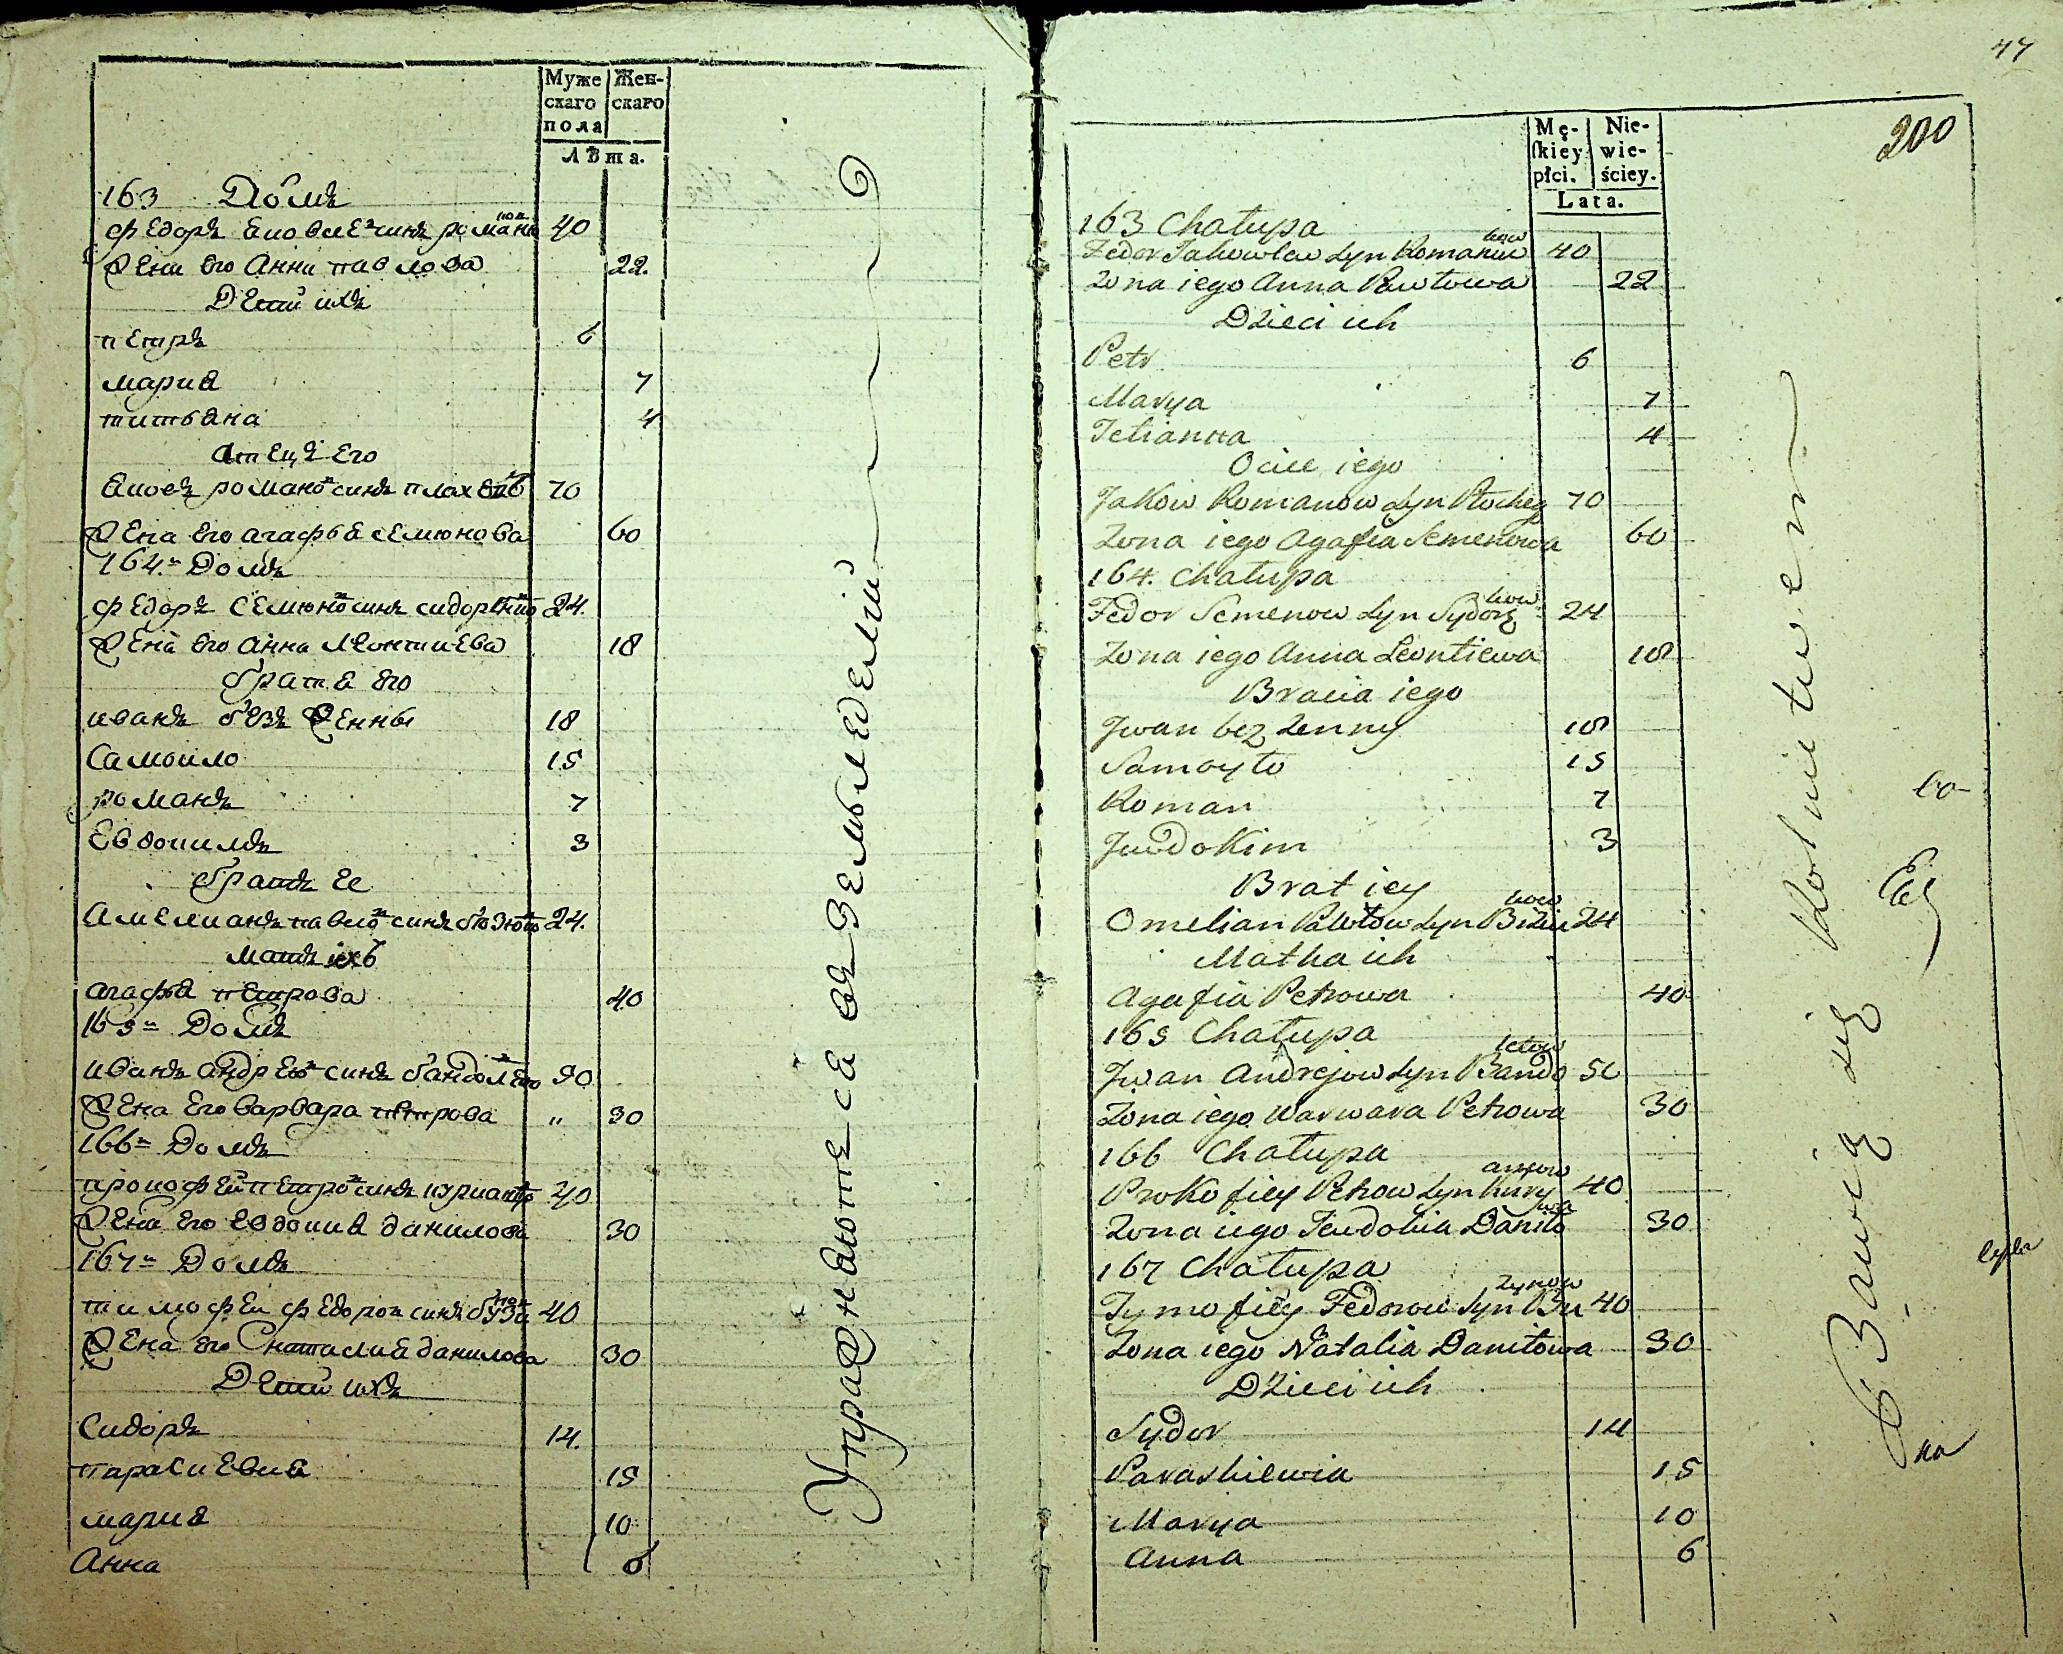 Муже
скаго
пола
Жен-
скаго
Лѣта.
163 Домъ
Федоръ Яковлевъ синъ Романков 40
Жена Его Анна Павлова 22.
Дети ихъ
Петръ 6
Мария 7
Титьяна 4
Атецъ Его
Яковъ Романовъ синъ 70
Жена Его Агафья Семюнова 60
164. Домъ
Федоръ Семюновъ синъ 24.
Жена Его Анна Леонтиева 18
Братя Его
Иванъ без женны 18
Самоило 15
Романъ 7
Евдокимъ 3
Братъ Ее
Амелианъ Павловъ синъ 24.
Мать ихъ
Агафия Петрова 40
165 Домъ
Иванъ Андреювъ синъ 50
Жена Его Варвара Петрова „ 30
166 Домъ
Прокофей Петровъ синъ 40
Жена Его Евдокия Данилова 30
167 Домъ
Тимофеи Федоров синъ 40
Жена Его Наталия Данилова 30
Дети ихъ
Сидоръ 14.
Параскиевия 15
Мария 10
Анна 6
Упражняютеся въ Земьледелий
47
200
Mę-
ſkiey
płci.
Nie-
wie-
ściey.
Lata.
163 Chałupa
Fedor Jakowlew Syn Romankow 40
Żona iego Anna Pawłowa 22
Dzieci ich
Petr 6
Marya 7
Tetianna 4
Ociec iego
Jakow Romanow Syn 70
Żona iego Agafia Semenowa 60
164. Chałupa
Fedor Semenow Syn 24
Żona iego Anna Leontiewa 18
Bracia iego
Jwan bez żenny 18
Samoyło 15
Roman 7
Jewdokim 3
Brat iey
Omelian Pawłow Syn 24
Matka ich
Agafia Petrowa 40
165 Chałupa
Jwan Andrejow Syn 50
Żona iego Warwara Petrowa 30
166 Chałupa
Prokofiey Petrow Syn 40
Żona iego Jewdokia Daniłowa 30
167 Chałupa
Tymofiey Fedorow Syn 40
Żona iego Natalia Daniłowa 30
Dzieci ich
Sydor 14
Paraskiewia 15
Marya 10
Anna 6
Bawią się Rolnictwem